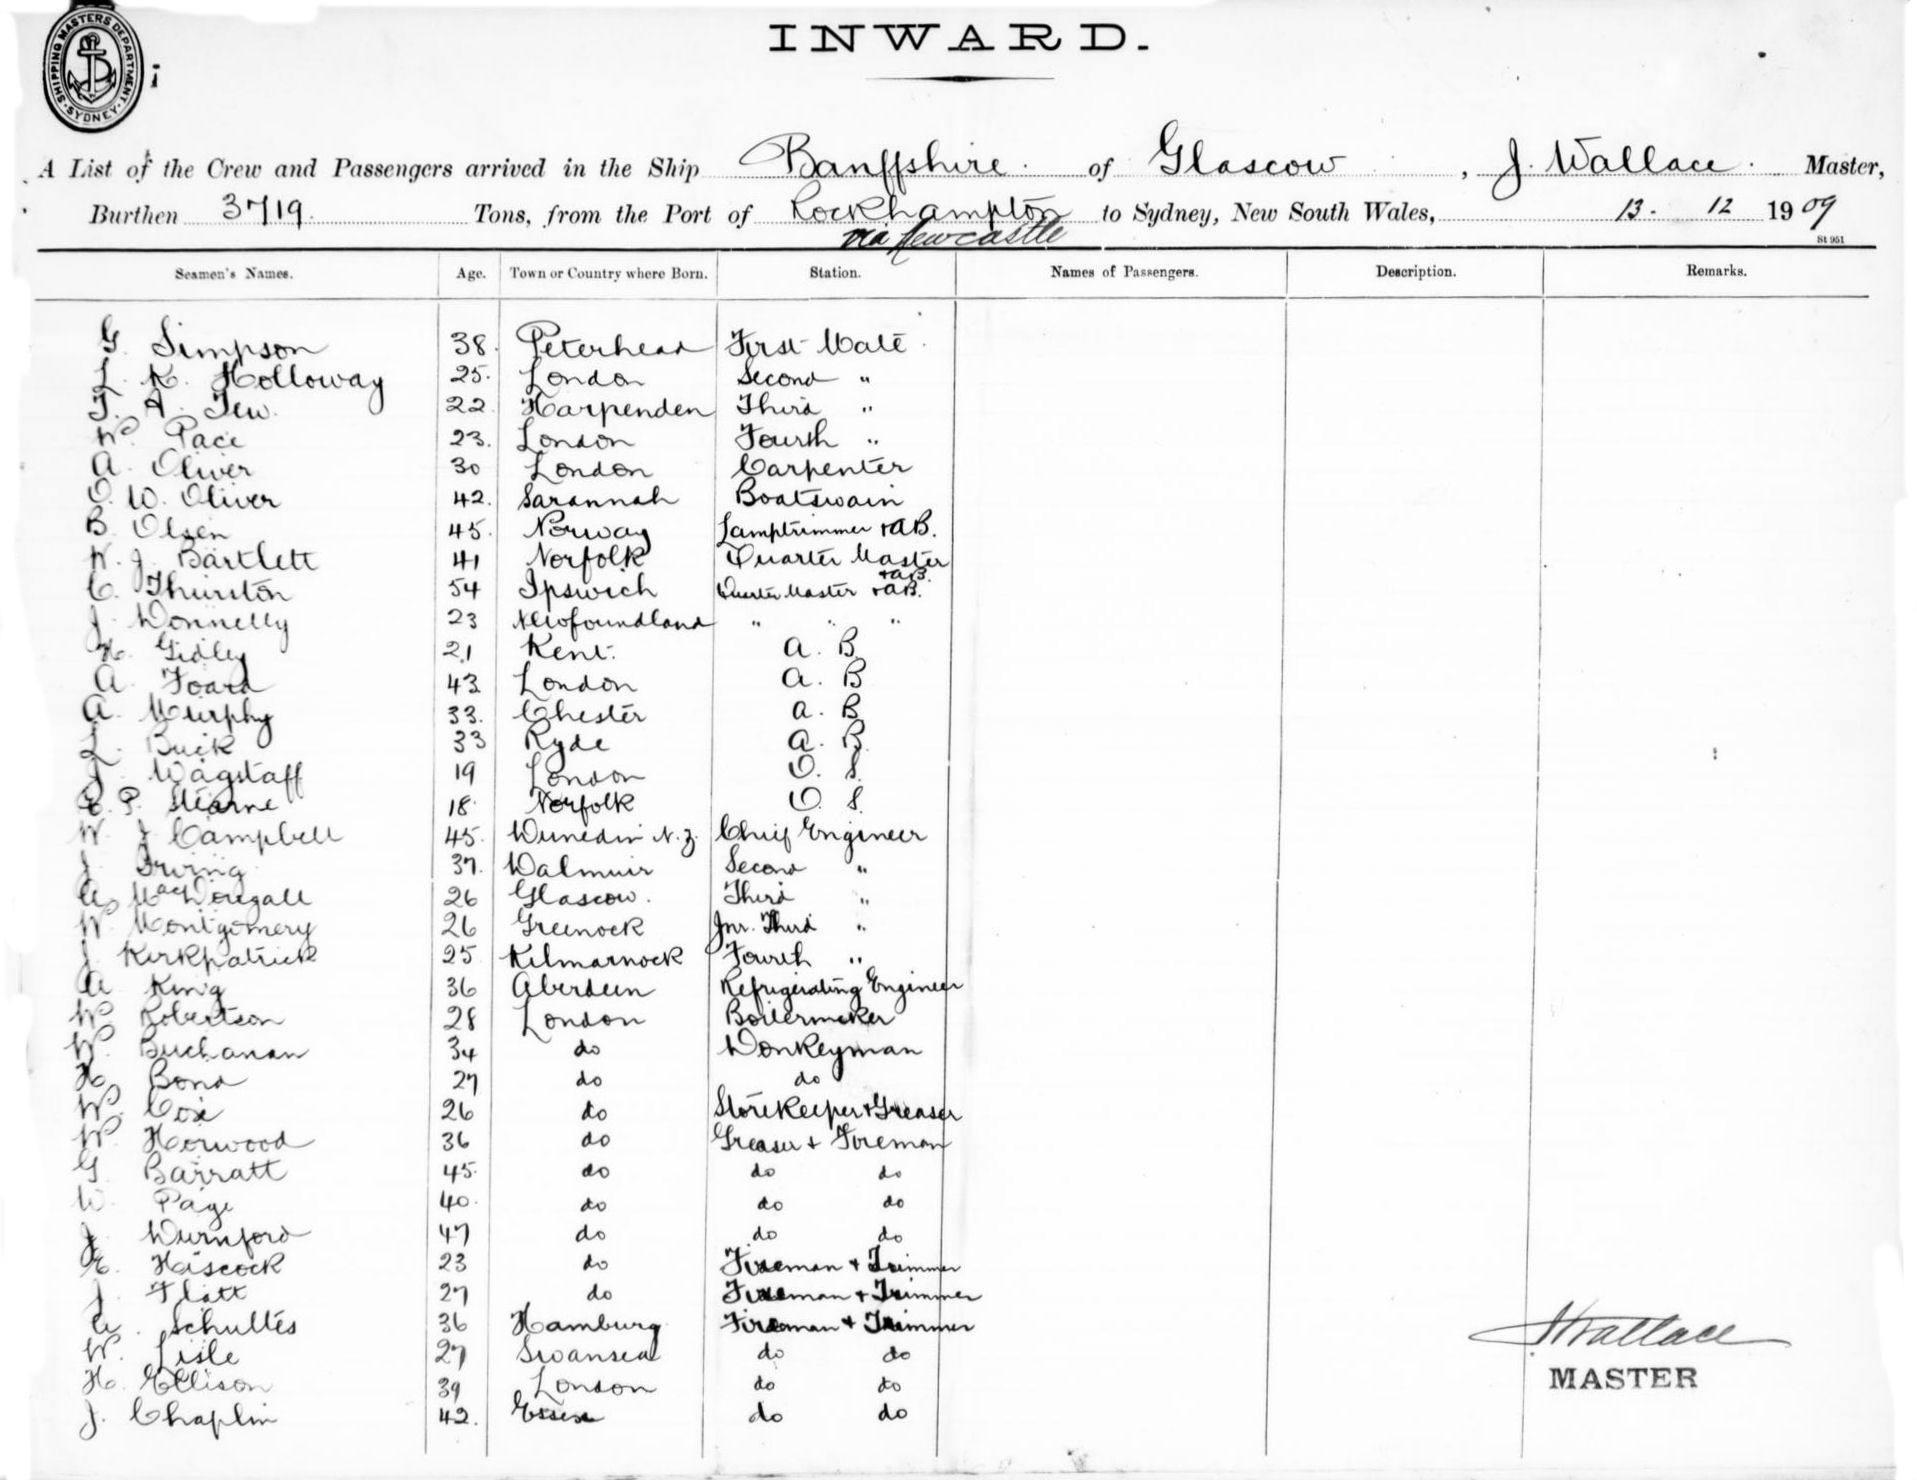 SHIPPING MASTERS DEPARTMENT. SYDNEY
INWARD.
A List of the Crew and Passengers arrived in the Ship Banffshire. of Glascow, J. Wallace. Master,
Burthen 3719. Tons, from the Port of Rockhampton to Sydney, New South Wales, 13. 12 1909
via Newcastle
St 951
Seamen's Names. Age. Town or Country where Born. Station. Names of Passengers. Description. Remarks.
G. Simpson 38. Peterhead First Mate
L. K. Holloway 25. London Second "
T. A. Tew. 22 Harpenden Third "
W. Pace 23. London Fourth "
A. Oliver 30 London Carpenter
O. W. Oliver 42. Savannah Boatswain
B. Olsen 45. Norway Lamptrimmer + AB.
W. J. Bartlett 41 Norfolk Quarter Master + AB.
C. Thurston 54 Ipswich Quarter Master + AB.
J. Donnelly 23 Newfoundland " " "
H. Gidley 21 Kent. A. B.
A. Foard 43 London A. B
A. Murphy 33. Chester A. B
L. Buck 33 Ryde A. B.
J. Wagstaff 19 London O. S.
E. P. Stearne 18 Norfolk O. S.
W. J. Campbell 45. Dunedin N.Z. Chief Engineer
J. Irving 37. Dalmuir Second "
A. MacDougall 26 Glascow. Third "
W. Montgomery 26 Greenock Jnr. Third "
J. Kirkpatrick 25 Kilmarnock Fourth "
A. King 36 Aberdeen Refrigerating Engineer
W. Robertson 28 London Boilermaker
W. Buchanan 34 do Donkeyman
H. Bond 27 do do
W. Cox 26 do Storekeeper + Greaser
W. Horwood 36 do Greaser + Fireman
G. Barratt 45. do do do
W. Page 40. do do do
J. Durnford 47 do do do
E. Hiscock 23 do Fireman + Trimmer
J. Flatt 27 do Fireman + Trimmer
A. Schultes 36 Hamburg Fireman + Trimmer
W. Lisle 27 Swansea do do
H. Ellison 39 London do do
J. Chaplin 42. Essex do do
J Wallace
MASTER